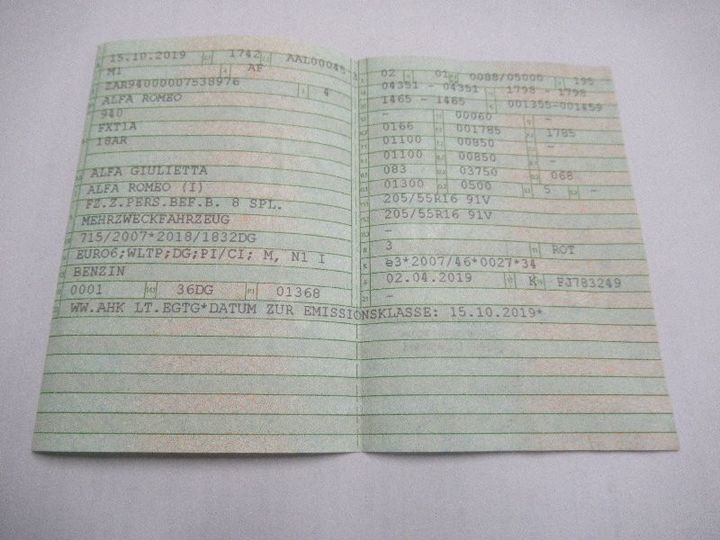 15.10.2019 1742 AAL00045
M1 AF
ZAR94000007538976 4
ALFA ROMEO
940
FXT1A
18AR
ALFA GIULIETTA
ALFA ROMEO (I)
FZ.Z.PERS.BEF.B. 8 SPL.
MEHRZWECKFAHRZEUG
715/2007*2018/1832DG
EURO6;WLTP;DG;PI/CI; M, N1 I
BENZIN
0001 36DG 01368
02 01 0088/05000 195
04351 - 04351 1798 - 1798
1465 - 1465 001355-001459
- 00060 -
0166 001785 1785
01100 00850 -
01100 00850 -
083 03750 068
01300 0500 5 -
205/55R16 91V
205/55R16 91V
-
3 ROT
e3*2007/46*0027*34
02.04.2019 K FJ783249
-
WW.AHK LT.EGTG*DATUM ZUR EMISSIONSKLASSE: 15.10.2019*